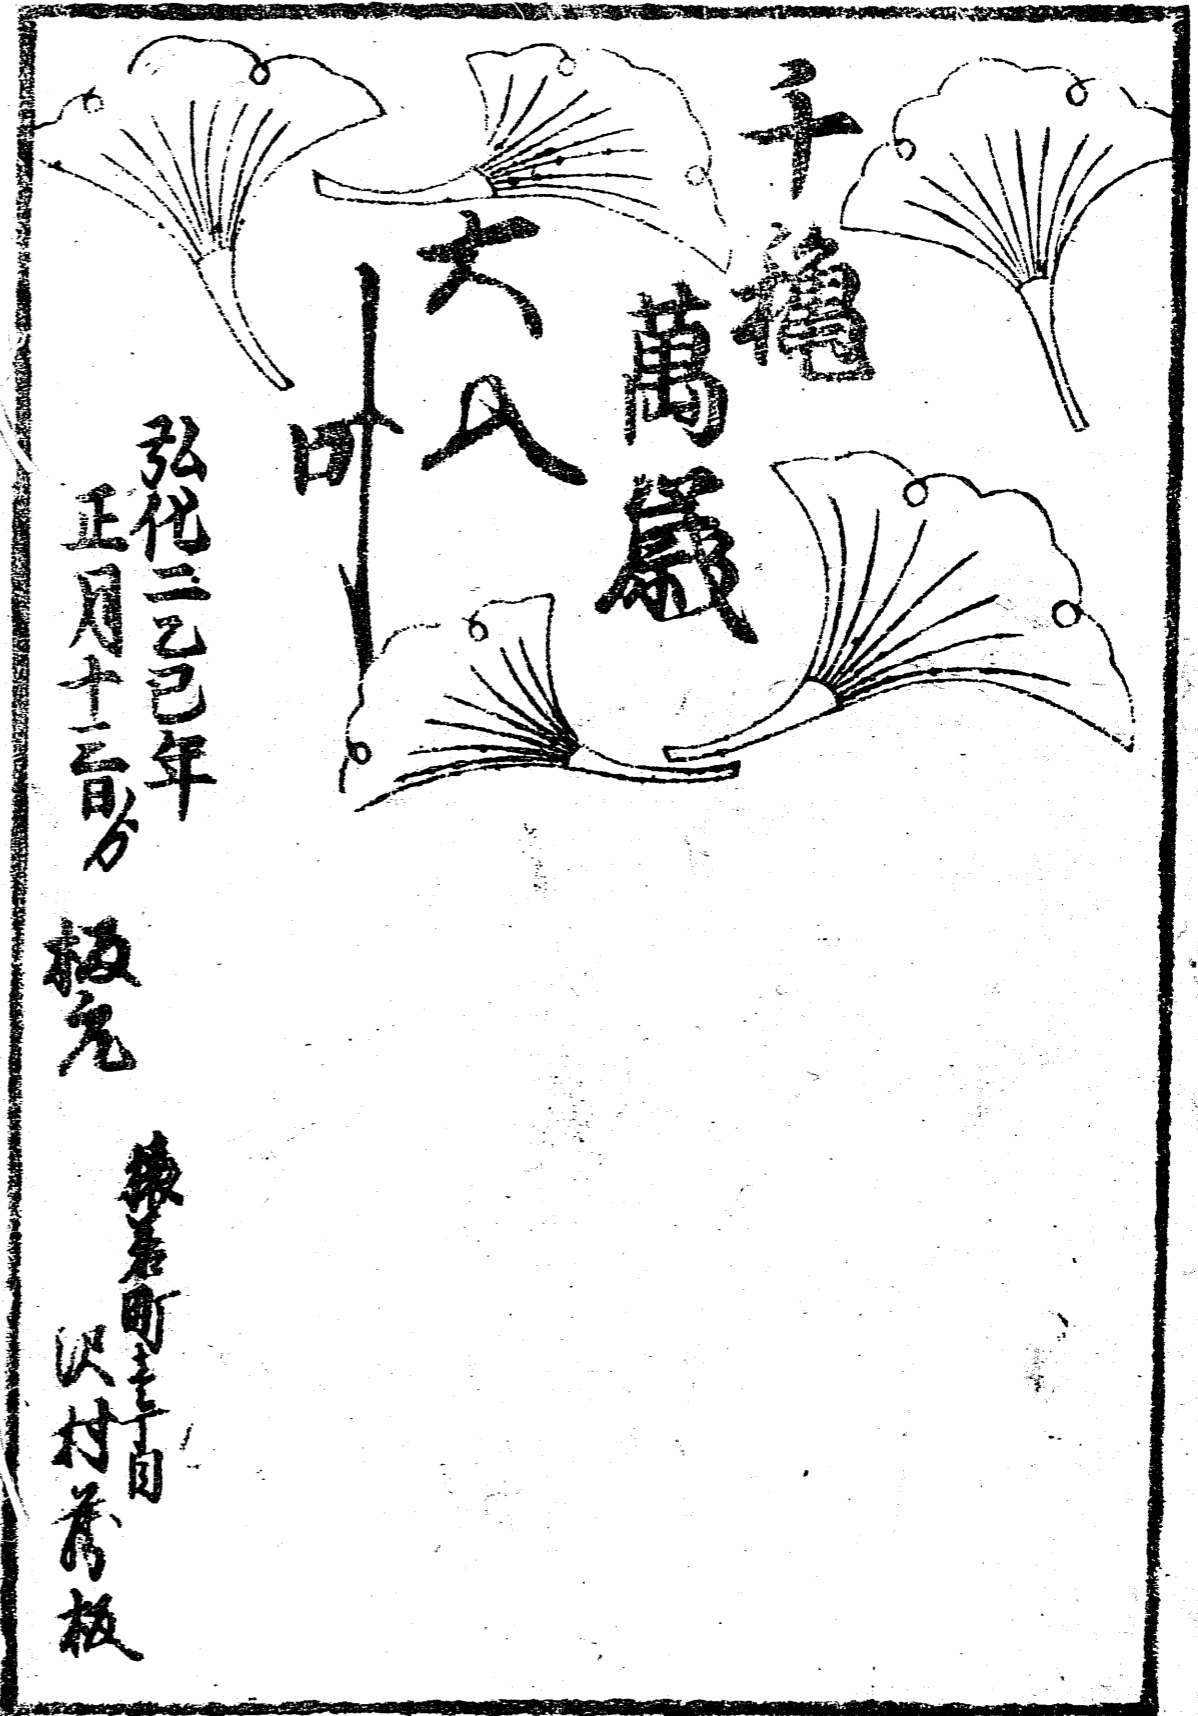 千穐
萬歳
大入
叶
弘化二乙巳年
正月十三日ゟ
板元
猿若町壱丁目
沢村蔵板